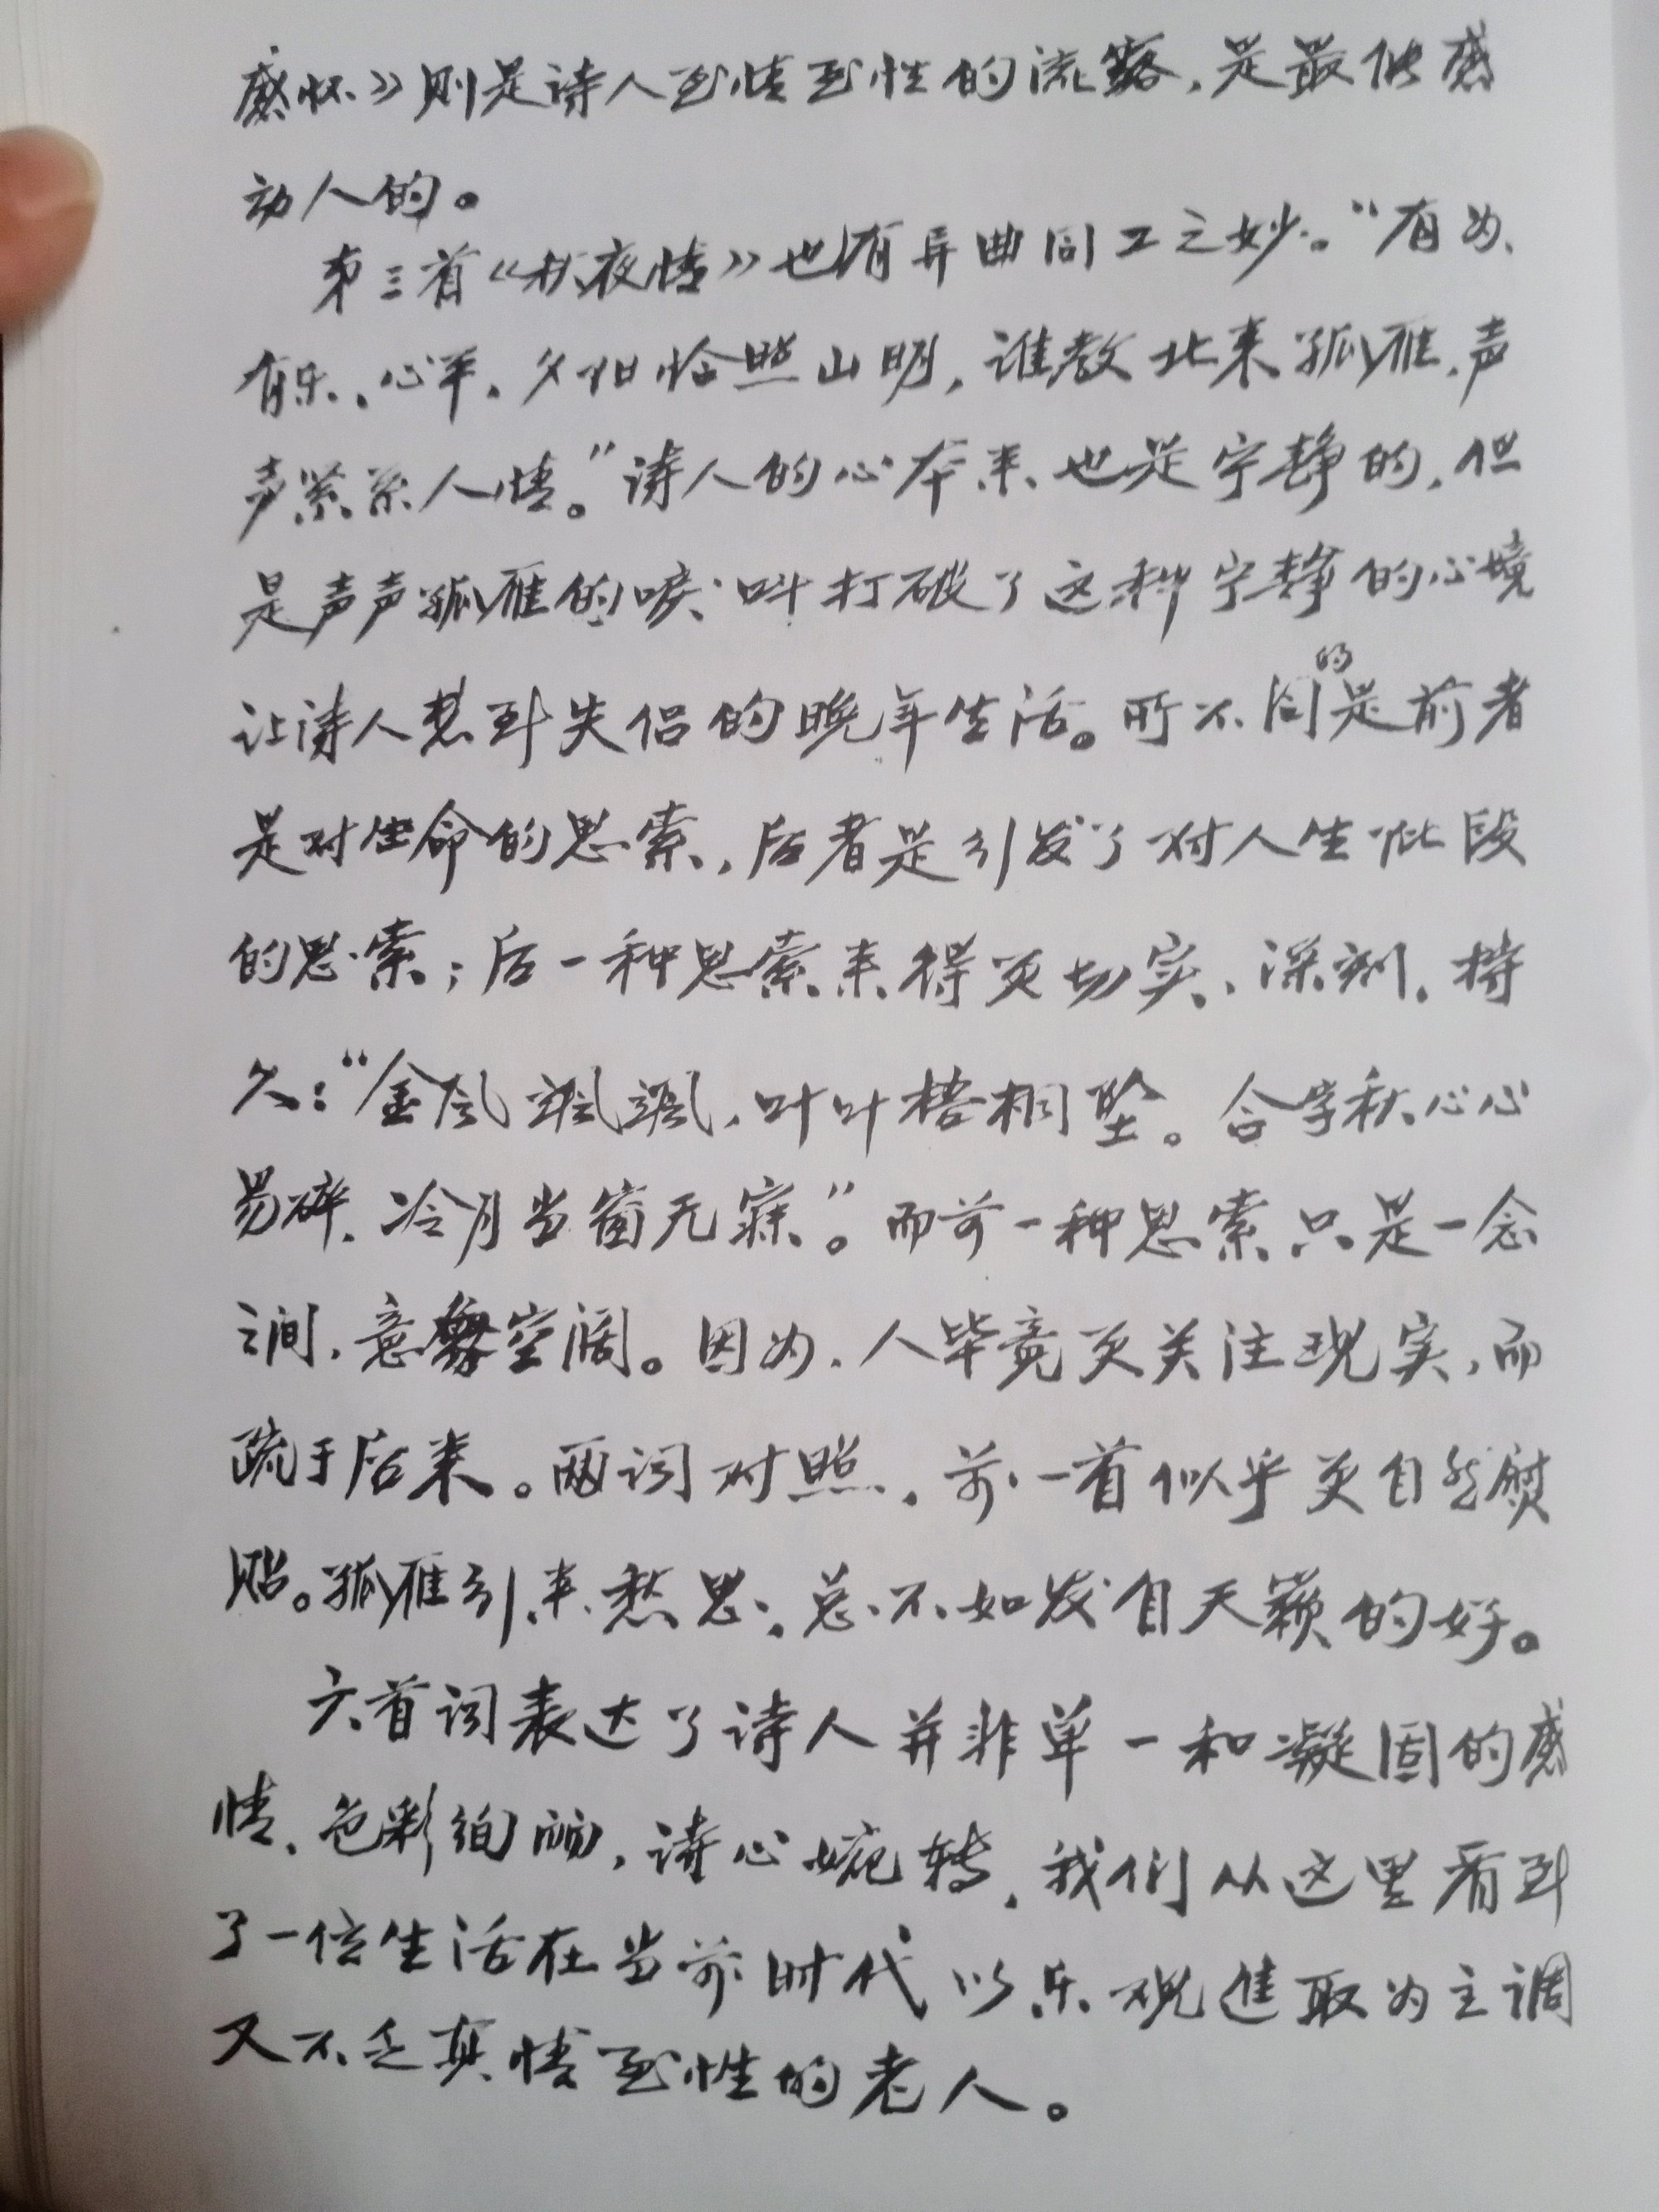 感怀》则是诗人至情至性的流露，是最能感
动人的。
第三首《秋夜情》也有异曲同工之妙。“有为、
有乐、心平，夕阳恰照山明，谁教北来孤雁，声
声紧系人情。”诗人的心本来也是宁静的，但
是声声孤雁的唳叫打破了这种宁静的心境
让诗人想到失侣的晚年生活。所不同的是前者
是对生命的思索，后者是引发了对人生此段
的思索；后一种思索来得更切实、深刻、持
久：“金风飒飒，叶叶梧桐坠。合字秋心心
易碎，冷月当窗无寐”。而前一种思索只是一念
之间，意 空阔。因为，人毕竟更关注现实，而
疏于后来。两词对照，前一首似乎更自然熨
贴。孤雁引来愁思，总不如发自天籁的好。
六首词表达了诗人并非单一和凝固的感
情，色彩绚丽，诗心婉转，我们从这里看到
了一位生活在当前时代以乐观进取为主调
又不乏真情至性的老人。